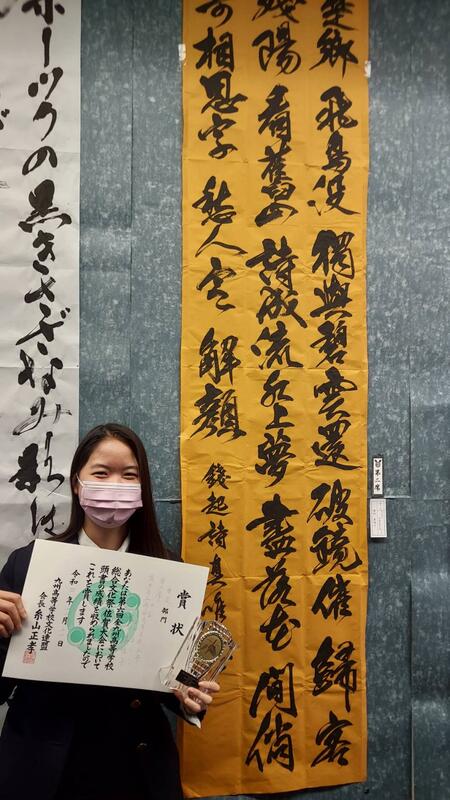 鄉飛鳥没獨與碧雲還破鏡催歸客
殘陽看舊山詩成流水上夢盡落花間倘
寄相思字愁人定解顔 錢起詩
ホーツクの黒きさざなみ
賞状
部門
あなたは第六回九州高等学校
総合文化祭佐賀大会において
頭書の成績を収められましたので
これを賞します
令和 年 月 日
九州高等学校文化連盟
会長 糸山正孝